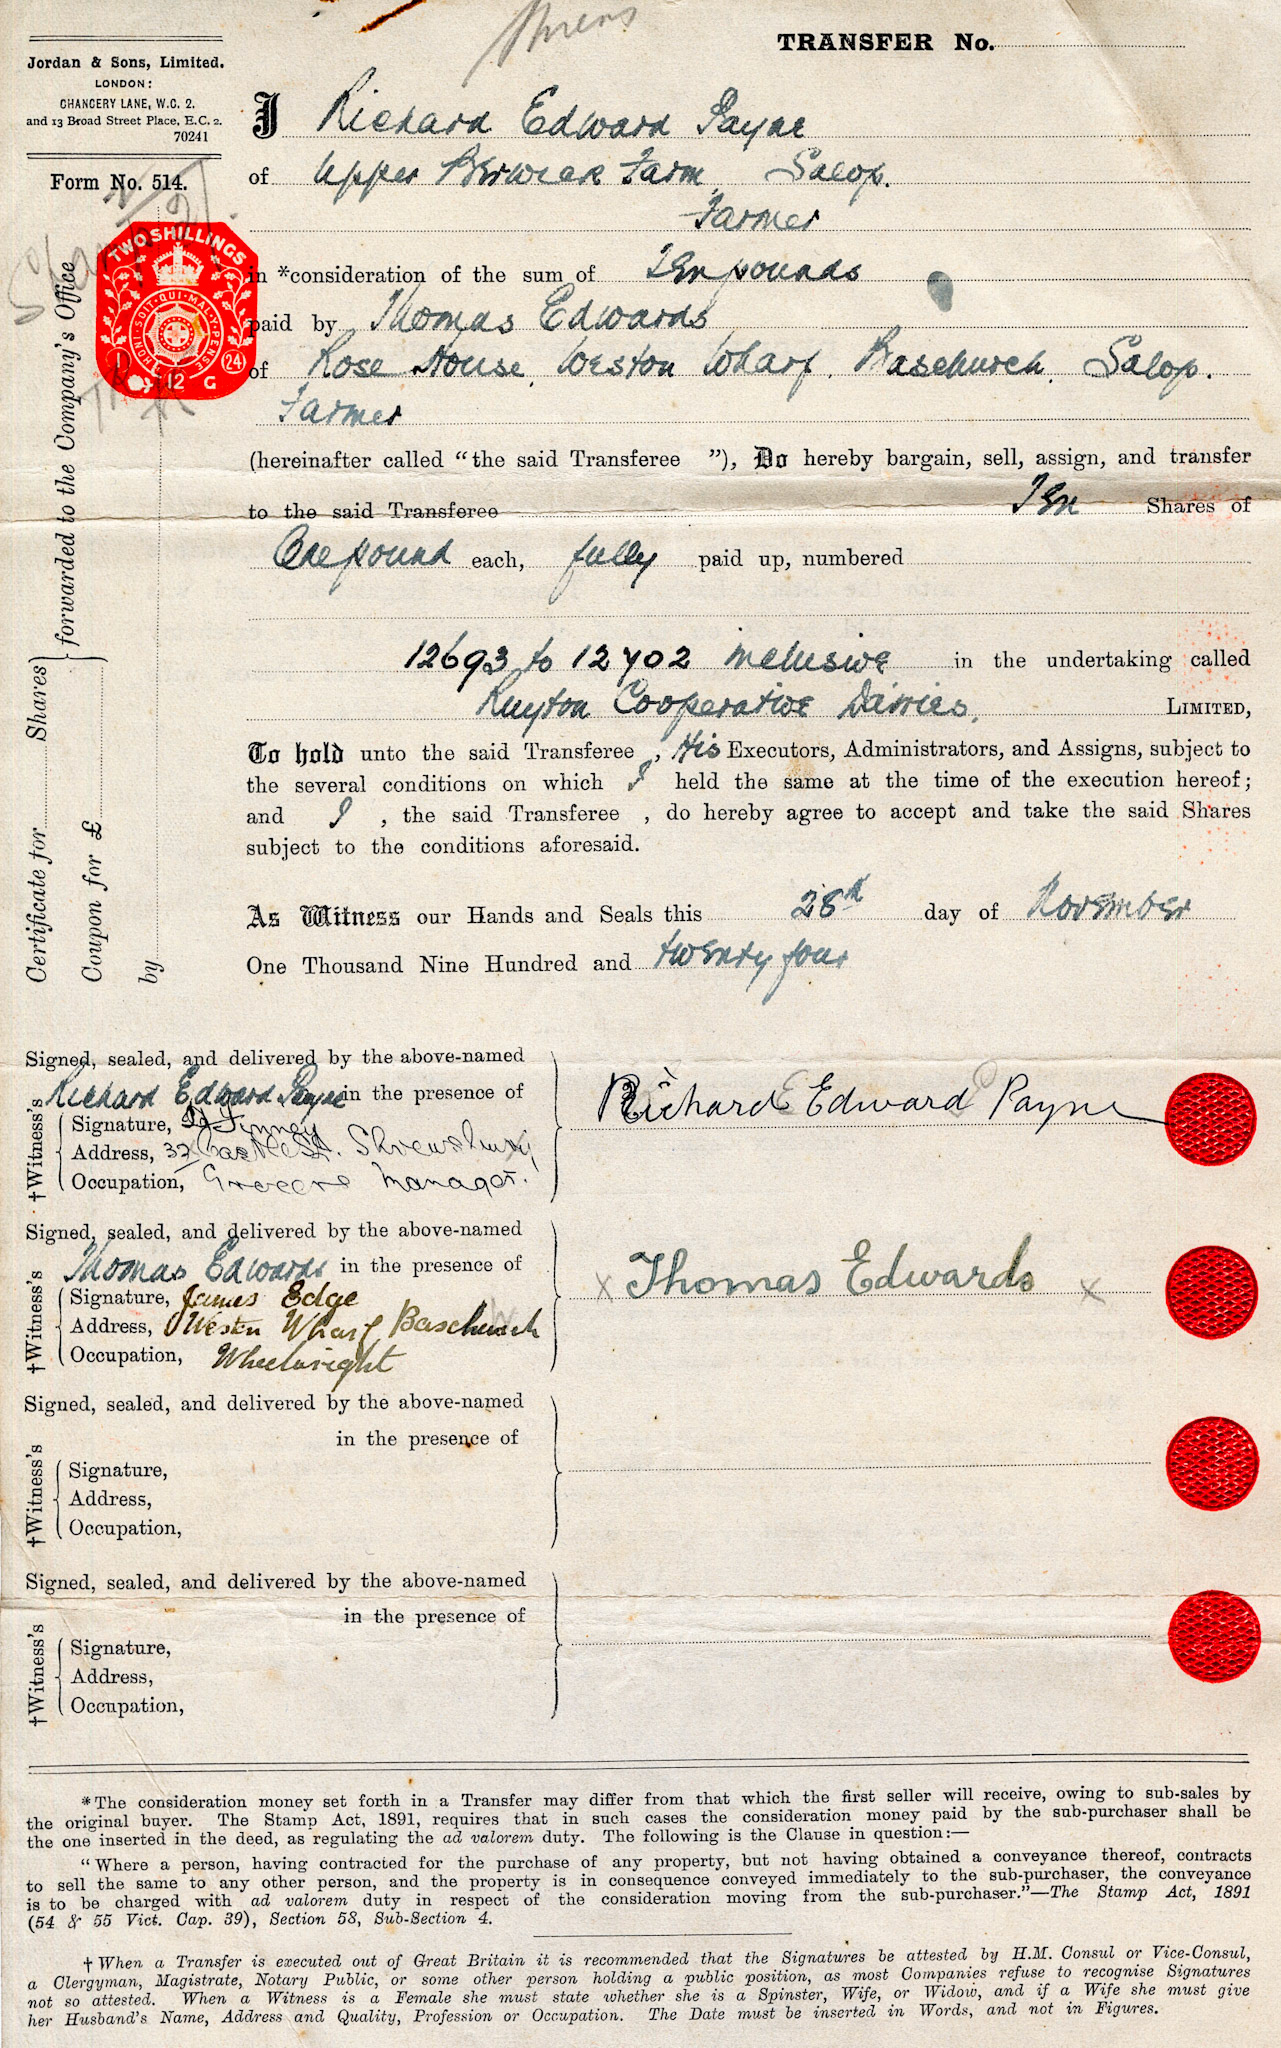 Jordan & Sons, Limited.
LONDON:
CHANCERY LANE, W.C. 2.
and 13 Broad Street Place, E.C. 2.
70241
Form No. 514.
TRANSFER No.
TWO SHILLINGS
HONI·SOIT·QUI·MAL·Y·PENSE
24
12 G
Certificate for Shares
Coupon for £
forwarded to the Company's Office
by
I Richard Edward Payne
of Upper Berwick Farm, Salop.
Farmer
in *consideration of the sum of Ten pounds
paid by Thomas Edwards
of Rose House, Weston Wharf, Baschurch, Salop.
Farmer
(hereinafter called "the said Transferee "), Do hereby bargain, sell, assign, and transfer
to the said Transferee Ten Shares of
One pound each, fully paid up, numbered
12693 to 12702 inclusive in the undertaking called
Ruyton Cooperative Dairies, LIMITED,
To hold unto the said Transferee , His Executors, Administrators, and Assigns, subject to
the several conditions on which I held the same at the time of the execution hereof;
and I , the said Transferee , do hereby agree to accept and take the said Shares
subject to the conditions aforesaid.
As Witness our Hands and Seals this 28th day of November
One Thousand Nine Hundred and twenty four
Signed, sealed, and delivered by the above-named
Richard Edward Payne in the presence of
†Witness's
Signature, Finney
Address, 32 Castle St. Shrewsbury
Occupation, Grocers Manager.
Richard Edward Payne
Signed, sealed, and delivered by the above-named
Thomas Edwards in the presence of
†Witness's
Signature, James Edge
Address, Weston Wharf, Baschurch
Occupation, Wheelwright
x Thomas Edwards x
Signed, sealed, and delivered by the above-named
in the presence of
†Witness's
Signature,
Address,
Occupation,
Signed, sealed, and delivered by the above-named
in the presence of
†Witness's
Signature,
Address,
Occupation,
*The consideration money set forth in a Transfer may differ from that which the first seller will receive, owing to sub-sales by
the original buyer. The Stamp Act, 1891, requires that in such cases the consideration money paid by the sub-purchaser shall be
the one inserted in the deed, as regulating the ad valorem duty. The following is the Clause in question:—
"Where a person, having contracted for the purchase of any property, but not having obtained a conveyance thereof, contracts
to sell the same to any other person, and the property is in consequence conveyed immediately to the sub-purchaser, the conveyance
is to be charged with ad valorem duty in respect of the consideration moving from the sub-purchaser."—The Stamp Act, 1891
(54 & 55 Vict. Cap. 39), Section 58, Sub-Section 4.
†When a Transfer is executed out of Great Britain it is recommended that the Signatures be attested by H.M. Consul or Vice-Consul,
a Clergyman, Magistrate, Notary Public, or some other person holding a public position, as most Companies refuse to recognise Signatures
not so attested. When a Witness is a Female she must state whether she is a Spinster, Wife, or Widow, and if a Wife she must give
her Husband's Name, Address and Quality, Profession or Occupation. The Date must be inserted in Words, and not in Figures.